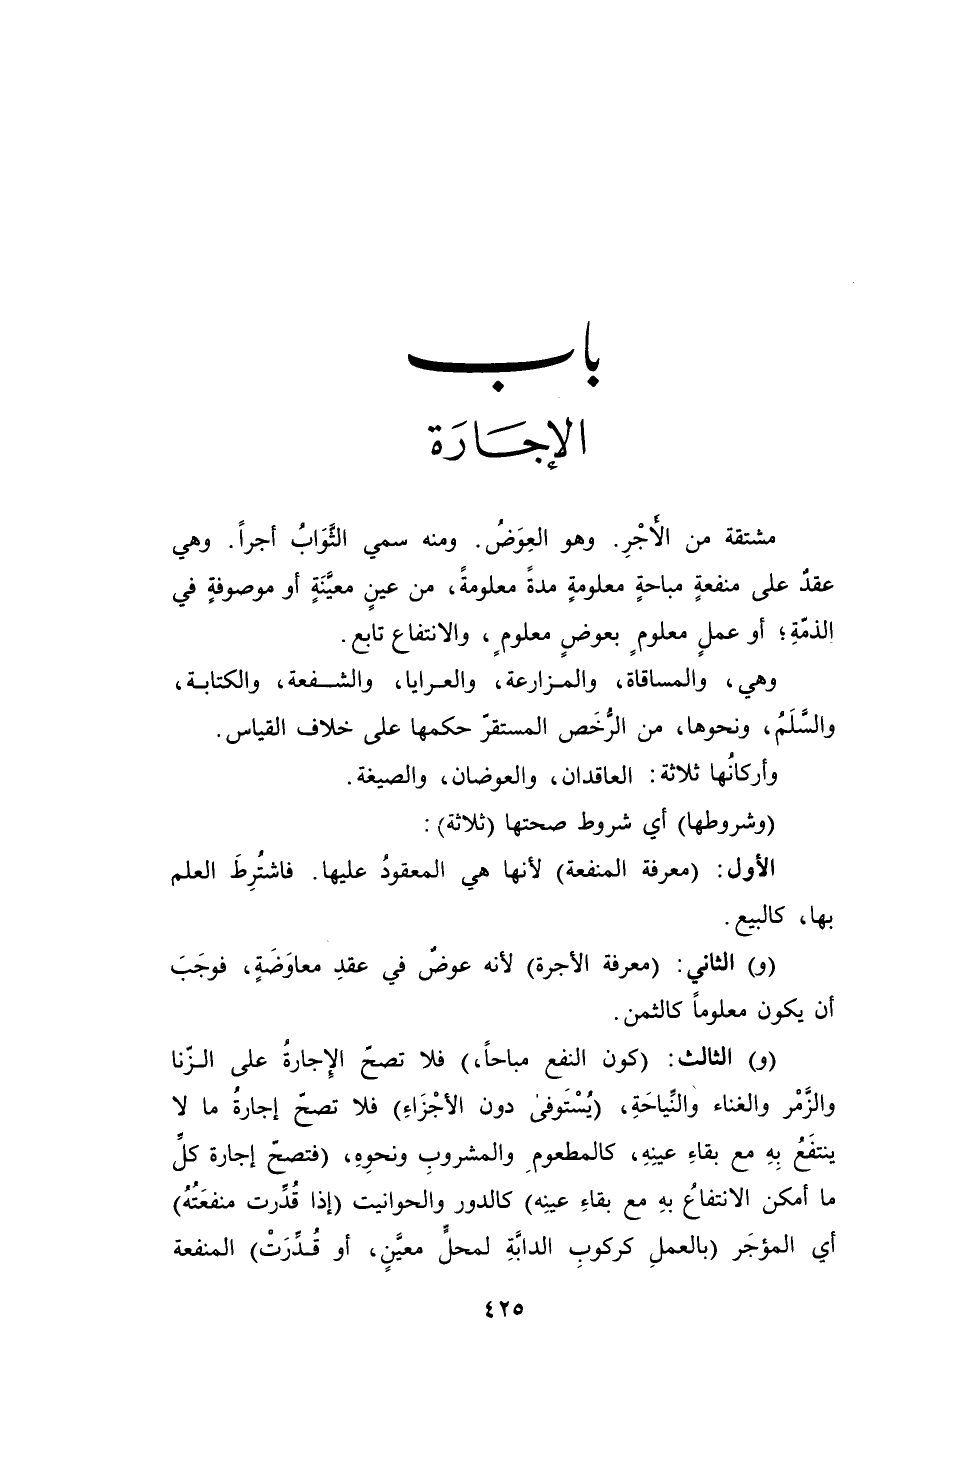 باب
الإجَارَة
مشتقة من الأَجْرِ. وهو العِوَضُ. ومنه سمي الثَّوَابُ أجراً. وهي
عقدٌ على منفعةٍ مباحةٍ معلومةٍ مدةً معلومةً، من عينٍ معيَّنَةٍ أو موصوفةٍ في
الذمّةِ؛ أو عملٍ معلومٍ بعوضٍ معلومٍ، والانتفاع تابع.
وهي، والمساقاة، والمـزارعة، والعـرايا، والشـفعة، والكتابـة،
والسَّلَمُ، ونحوها، من الرُّخَص المستقرّ حكمها على خلاف القياس.
وأركانُها ثلاثة: العاقدان، والعوضان، والصيغة.
(وشروطها) أي شروط صحتها (ثلاثة):
الأول: (معرفة المنفعة) لأنها هي المعقودُ عليها. فاشتُرِطَ العلم
بها، كالبيع.
(و) الثاني: (معرفة الأجرة) لأنه عوضٌ في عقدِ معاوَضَةٍ، فوجَبَ
أن يكون معلوماً كالثمن.
(و) الثالث: (كون النفع مباحاً،) فلا تصحّ الإِجارةُ على الـزّنا
والزَّمْر والغناء والنِّياحَةِ، (يُسْتَوفىٰ دون الأجْزَاءِ) فلا تصحّ إجارةُ ما لا
ينتفَعُ بِهِ مع بقاءِ عينِهِ، كالمطعومِ والمشروبِ ونحوِهِ، (فتصحّ إجارة كلِّ
ما أمكن الانتفاعُ بهِ مع بقاءِ عينِه) كالدور والحوانيت (إذا قُدِّرت منفعَتُهُ)
أي المؤجَر (بالعملِ كركوبِ الدابَّةِ لمحلٍّ معيَّنٍ، أو قُـدِّرَتْ) المنفعة
٤٢٥